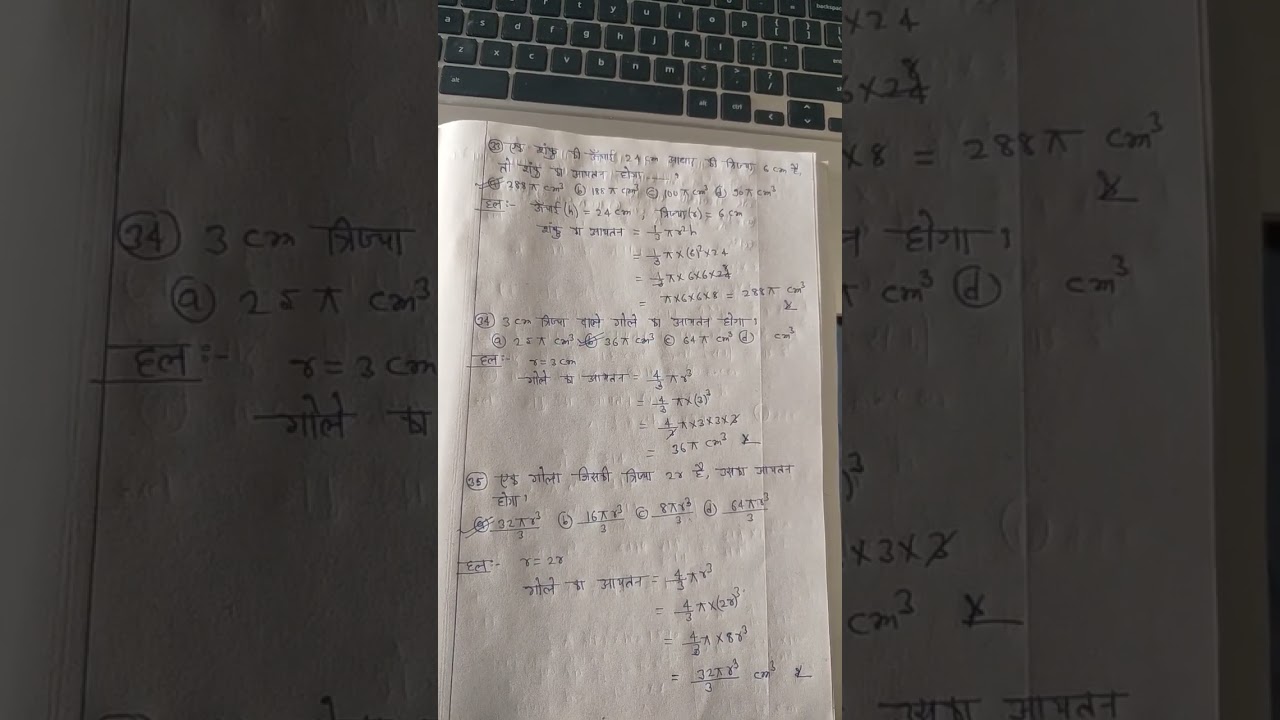 33 एक शंकु की ऊँचाई 24 cm आधार की त्रिज्या 6 cm है,
तो शंकु का आयतन होगा ....,
(a) 288π cm³ (b) 188π cm³ (c) 100π cm³ (d) 90π cm³
हल :- ऊँचाई (h) = 24 cm , त्रिज्या (r) = 6 cm
शंकु का आयतन = 1/3 πr²h
= 1/3 π×(6)²×24
= 1/3 π×6×6×24 8
= π×6×6×8 = 288π cm³
34 3 cm त्रिज्या वाले गोले का आयतन होगा,
(a) 25π cm³ (b) 36π cm³ (c) 64π cm³ (d) cm³
हल :- r = 3 cm
गोले का आयतन = 4/3 πr³
= 4/3 π×(3)³
= 4/3 π×3×3×3
= 36π cm³
35 एक गोला जिसकी त्रिज्या 2r है, उसका आयतन
होगा,
(a) 32πr³/3 (b) 16πr³/3 (c) 8πr³/3 (d) 64πr³/3
हल :- r = 2r
गोले का आयतन = 4/3 πr³
= 4/3 π×(2r)³
= 4/3 π×8r³
= 32πr³/3 cm³